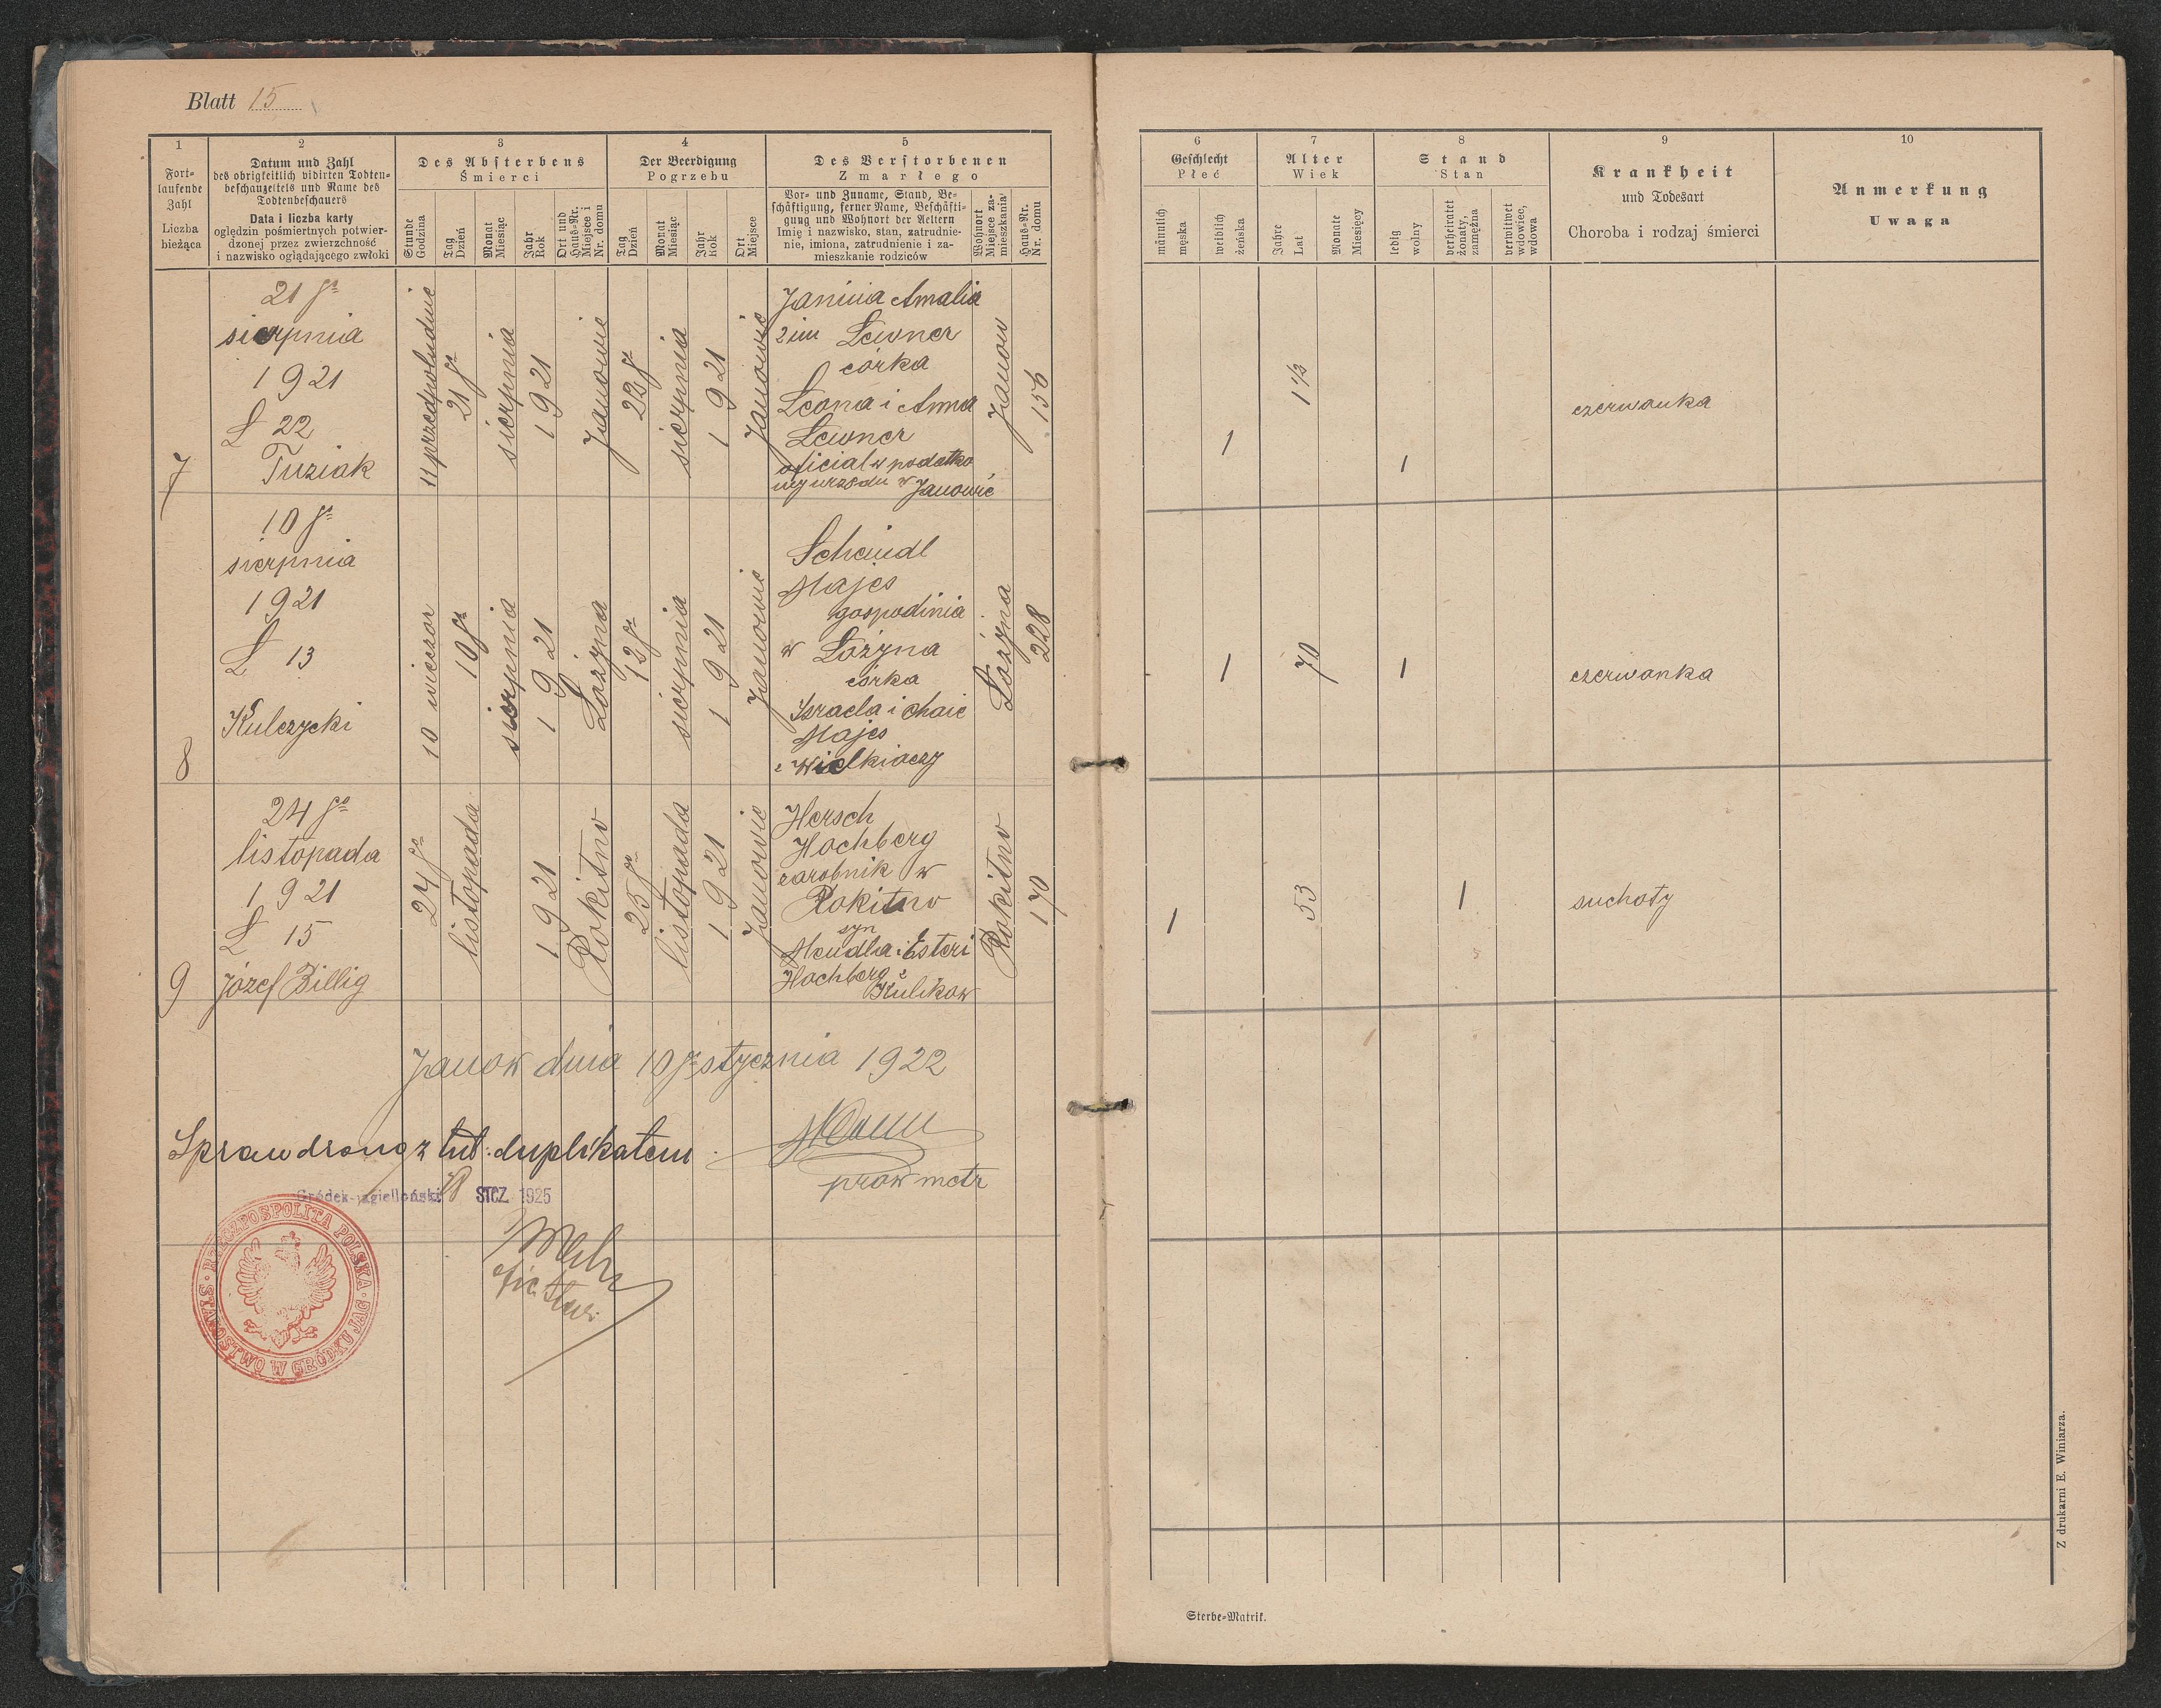 Blatt 15
1
Fort-
laufende
Zahl
Liczba
bieżąca
2
Datum und Zahl
des obrigkeitlich vidirten Todten-
beschauzettels und Name des
Todtenbeschauers
Data i liczba karty
oględzin pośmiertnych potwier-
dzonej przez zwierzchność
i nazwisko oglądającego zwłoki
3
Des Absterbens
Śmierci
Stunde
Godzina
Tag
Dzień
Monat
Miesiąc
Jahr
Rok
Ort und
Haus-Nr.
Miejsce i
Nr. domu
4
Der Beerdigung
Pogrzebu
Tag
Dzień
Monat
Miesiąc
Jahr
Rok
Ort
Miejsce
5
Des Verstorbenen
Zmarłego
Vor- und Zuname, Stand, Be-
schäftigung, ferner Name, Beschäfti-
gung und Wohnort der Aeltern
Imię i nazwisko, stan, zatrudnie-
nie, imiona, zatrudnienie i za-
mieszkanie rodziców
Wohnort
Miejsce za-
mieszkania
Haus-Nr.
Nr. domu
6
Geschlecht
Płeć
männlich
męska
weiblich
żeńska
7
Alter
Wiek
Jahre
Lat
Monate
Miesięcy
8
Stand
Stan
ledig
wolny
verheiratet
żonaty,
zamężna
verwitwet
wdowiec,
wdowa
9
Krankheit
und Todesart
Choroba i rodzaj śmierci
10
Anmerkung
Uwaga
7
21 go
sierpnia
1921
L 22
Tuziak
11 przedpołudnie
21 go
sierpnia
1921
Janowie
22 go
sierpnia
1921
Janowie
Janina Amalia
2 im Lewner
córka
Leona i Anna
Lewner
oficial w podatko
wy urzędu w Janowie
Janow
156
1
1½
1
czerwonka
8
10 go
sierpnia
1921
L 13
Kulczycki
10 wieczor
10 go
sierpnia
1921
Łozyna
12 go
sierpnia
1921
Janowie
Scheindl
Majes
gospodinia
w Łożyna
córka
Izraela i Chaie
Majes
z Wielkiaczy
Łozyna
228
1
70
1
czerwonka
9
24 go
listopada
1921
L 15
Józef Billig
24 go
listopada
1921
Rokitno
25 go
listopada
1921
Janowie
Hersch
Hochberg
zarobnik w
Rokitno
syn
Mendla i Esteri
Hochberg z
Kulikow
Rokitno
170
1
53
1
suchoty
Janow dnia 10 go stycznia 1922
Sprawdzono z tut. duplikatem.
prow metr
Gródek-Jagielloński 18 STCZ. 1925
RZECZPOSPOLITA POLSKA
STAROSTWO W GRÓDKU JAG.
Sterbe-Matrik.
Z drukarni E. Winiarza.